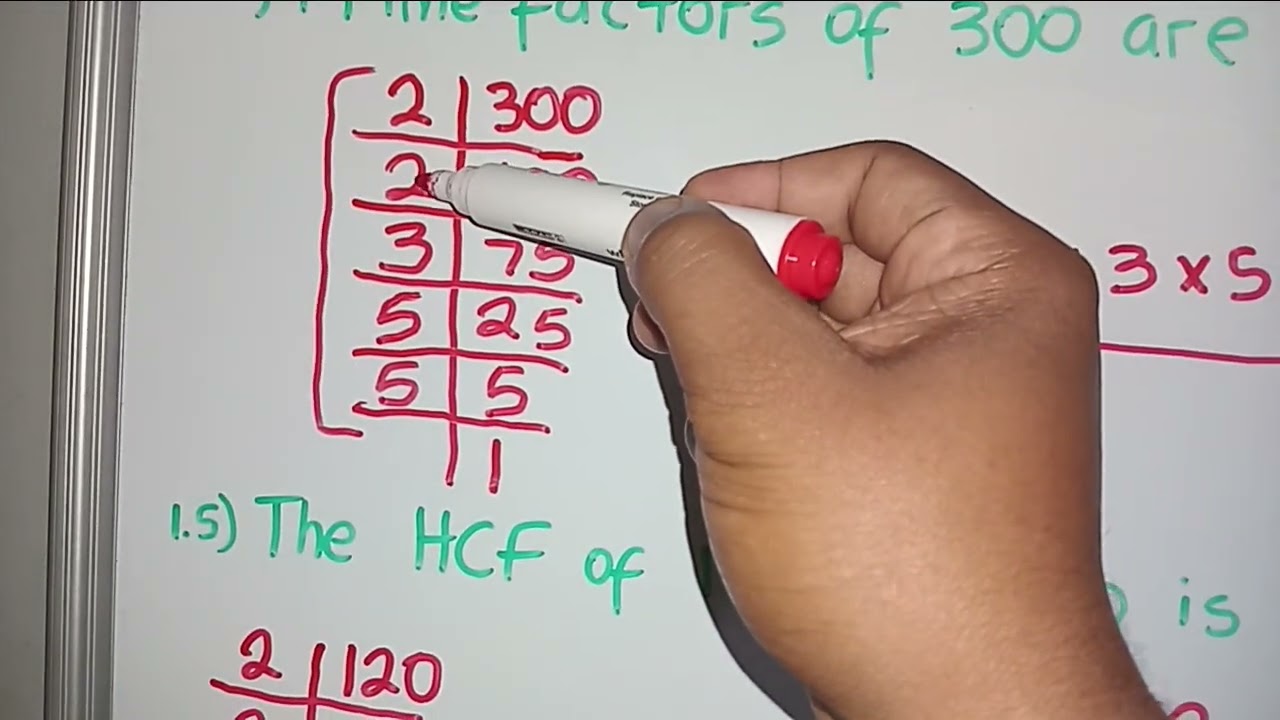 factors of 300 are
2 | 300
2
3 | 75
5 | 25
5 | 5
1
3 x 5
1.5) The HCF of is
2 | 120